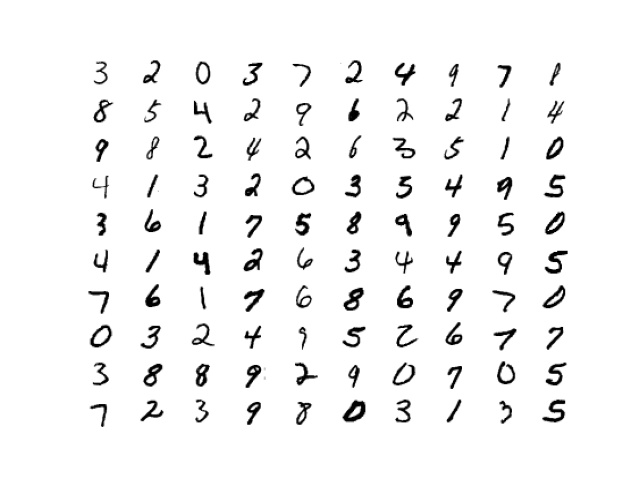 3 2 0 3 7 2 4 9 7 8
8 5 4 2 9 6 2 2 1 4
9 8 2 4 2 6 3 5 1 0
4 1 3 2 0 3 5 4 9 5
3 6 1 7 5 8 9 9 5 0
4 1 4 2 6 3 4 4 9 5
7 6 1 7 6 8 6 9 7 0
0 3 2 4 9 5 2 6 7 7
3 8 8 9 2 9 0 7 0 5
7 2 3 9 8 0 3 1 3 5